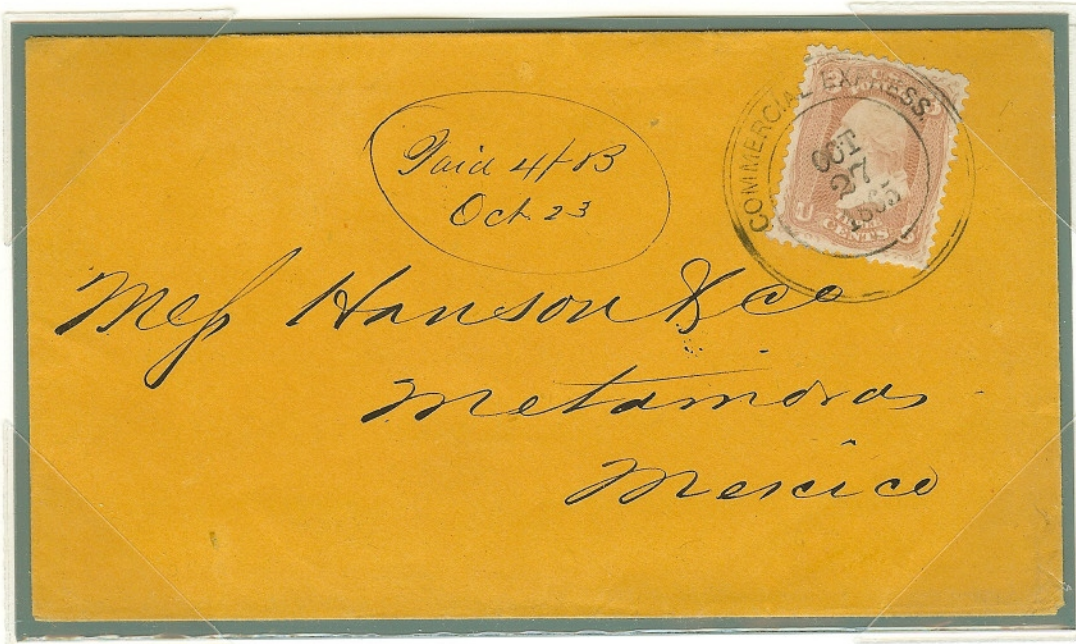 Paid 4/ B
Oct. 23
COMMERCIAL EXPRESS.
OCT
27
1865
U 3
CENTS
Mess Hanson & co
Metamoras
Mexico